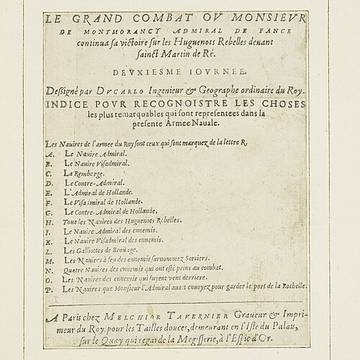 LE GRAND COMBAT OV MONSIEVR
DE MONTMORANCY ADMIRAL DE FANCE
continua sa victoire sur les Huguenots Rebelles deuant
sainct Martin de Ré.
DEVXIESME IOVRNEE.
Dessigné par DVCARLO Ingenieur & Geographe ordinaire du Roy.
INDICE POVR RECOGNOISTRE LES CHOSES
les plus remarquables qui sont representees dans la
presente Armee Nauale.
Les Nauires de l'armee du Roy sont ceux qui sont marquez de la lettre R.
A. Le Nauire Admiral.
B. Le Nauire Visadmiral.
C. La Remberge.
D. Le Contre-Admiral.
E. L'Admiral de Hollande.
F. Le Visadmiral de Hollande.
G. Le Contre-Admiral de Hollande,
H. Tous les Nauires des Huguenots Rebelles.
I. Le Nauire Admiral des ennemis.
K. Le Nauire Visadmiral des ennemis.
L. Les Galliottes de Brouage.
M. Les Nauires à feu des ennemis surnommez Sorciers.
N. Quatre Nauires des ennemis qui ont esté prins au combat.
O. Les Nauires des ennemis qui fuyent vent derriere.
P. Les Nauires que Monsieur l'Admiral auoit enuoyez pour garder le port de la Rochelle.
A Paris chez MELCHIOR TAVERNIER Graueur & Impri-
meur du Roy, pour les Tailles douces, demeurant en l'Isle du Palais,
sur le Quay qui regarde la Megisserie, à l'Espic d'Or.